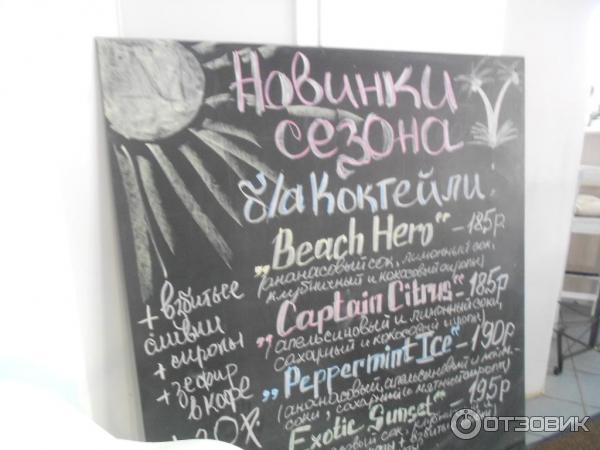 Новинки
сезона
б/а Коктейли
„Beach Hero“ – 185р
(ананасовый сок, лимонный сок,
клубничный и кокосовый сиропы)
„Captain Citrus“ – 185р
(апельсиновый и лимонный соки,
сахарный и кокосовый сиропы)
„Peppermint Ice“ – 190р
(ананасовый, апельсиновый и
соки, сахарный и мятный сироп)
„Exotic Sunset“ – 195р
сок,
+ взбитые
сливки
+ сиропы
+ зефир
в кофе
ОТЗОВИК